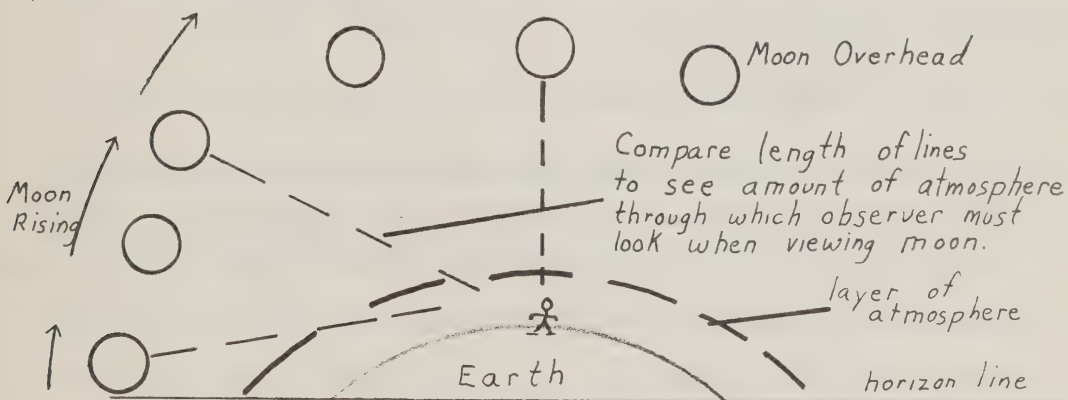 Moon Overhead
Compare length of lines
to see amount of atmosphere
through which observer must
look when viewing moon.
Moon
Rising
layer of
atmosphere
Earth
horizon line